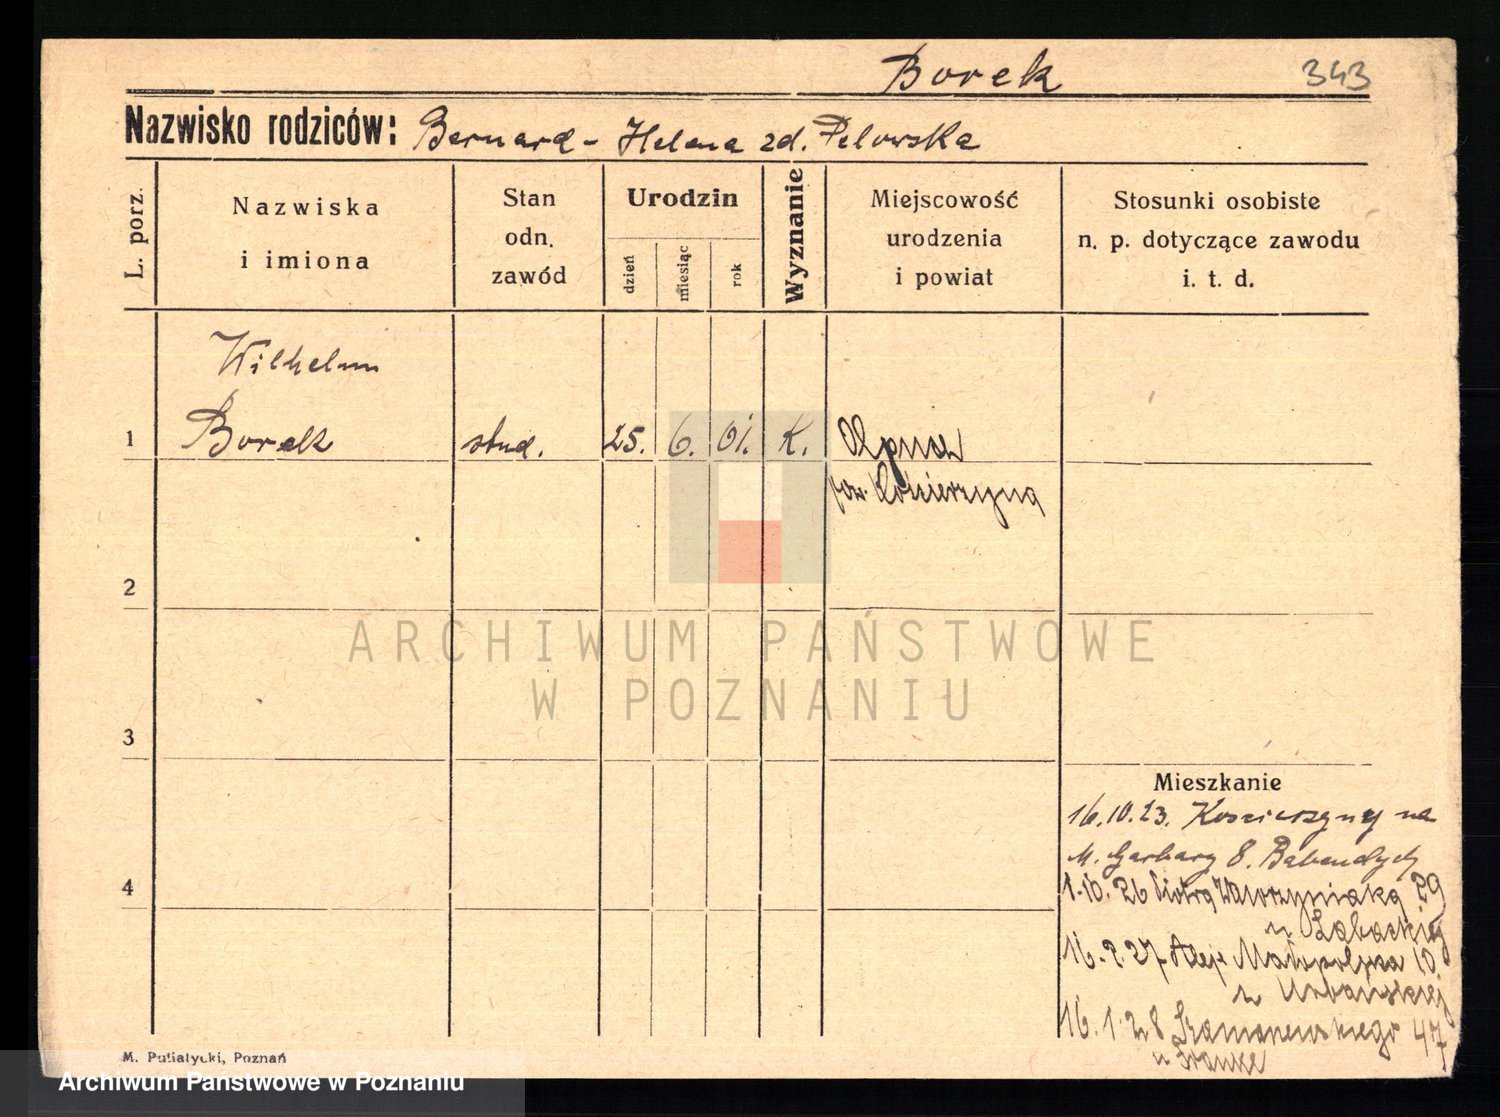 Borek 343
Nazwisko rodziców: Bernard - Helena zd. Pelowska
L. porz.
Nazwiska
i imiona
Stan
odn.
zawód
Urodzin
dzień
miesiąc
rok
Wyznanie
Miejscowość
urodzenia
i powiat
Stosunki osobiste
n. p. dotyczące zawodu
i. t. d.
Wilhelm
1 Borek stud. 25. 6. 01. K.
pow. Kościerzyna
2
ARCHIWUM PAŃSTWOWE
W POZNANIU
3
Mieszkanie
16.10.23. Kościerzyny na
M. Garbary 8.
4
1.10.26 Piotra Wawrzyniaka 29
u
16. 2. 27 Aleje Małopolska 10
u Urbańskiej
16. 1. 28 Szamarzewskiego 47
u Franke
M. Putiatycki, Poznań
Archiwum Państwowe w Poznaniu